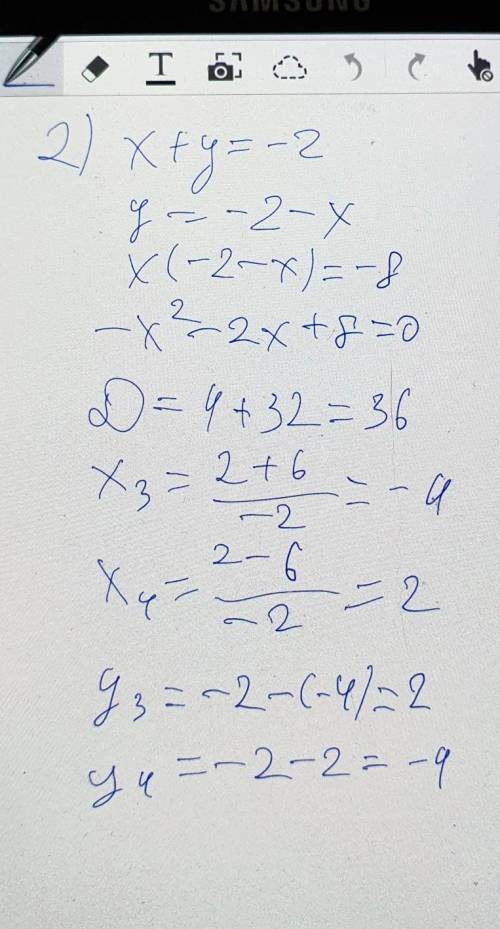 SAMSUNG
T
2) x+y=-2
y=-2-x
x(-2-x)=-8
-x²-2x+8=0
D=4+32=36
x₃=(2+6)/(-2)=-4
x₄=(2-6)/(-2)=2
y₃=-2-(-4)=2
y₄=-2-2=-4